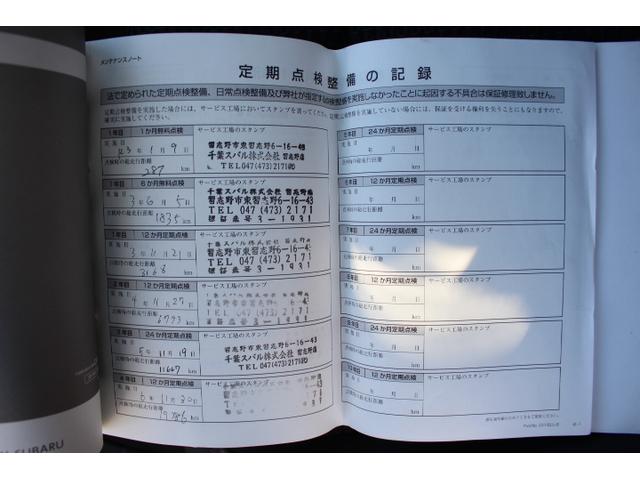 メンテナンスノート
定期点検整備の記録
法で定められた定期点検整備、日常点検整備及び弊社が指定する点検整備を実施しなかったことに起因する不具合は保証修理致しません。
定期点検整備を実施した場合には、サービス工場においてスタンプを貰ってください。
実施していない場合には、保証を受ける権利を失うことにもなりますので、
確実に実施してください。
1年目 1か月無料点検 サービス工場のスタンプ
実施日
R3年1月9日
点検時の総走行距離
287 km
習志野市東習志野6-16-43
千葉スバル株式会社 習志野店
TEL 047(473)2171
1年目 6か月無料点検 サービス工場のスタンプ
実施日
3年6月5日
点検時の総走行距離
1835 km
千葉スバル株式会社 習志野店
習志野市東習志野6-16-43
TEL 047 (473) 2171
認証番号 3-1931
1年目 12か月定期点検 サービス工場のスタンプ
実施日
3年11月21日
点検時の総走行距離
3168 km
千葉スバル株式会社 習志野店
習志野市東習志野6-16-43
TEL 047 (473) 2171
認証番号 3-1931
2年目 12か月定期点検 サービス工場のスタンプ
実施日
4年11月27日
点検時の総走行距離
6793 km
3年目 24か月定期点検 サービス工場のスタンプ
実施日
11月19日
点検時の総走行距離
11667 km
習志野市東習志野6-16-43
千葉スバル株式会社 習志野店
TEL 047(473)2171
4年目 12か月定期点検 サービス工場のスタンプ
実施日
6年11月30日
点検時の総走行距離
km
24か月定期点検 サービス工場のスタンプ
年 月 日
km
12か月定期点検 サービス工場のスタンプ
年 月 日
km
24か月定期点検 サービス工場のスタンプ
年 月 日
km
12か月定期点検 サービス工場のスタンプ
年 月 日
km
24か月定期点検 サービス工場のスタンプ
年 月 日
km
12か月定期点検 サービス工場のスタンプ
年 月 日
km
SUBARU